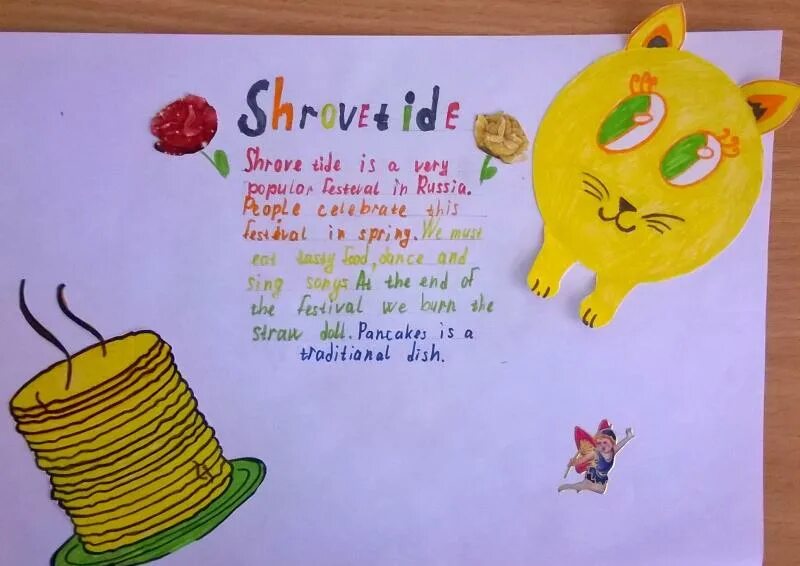 Shrovetide
Shrove tide is a very
popular festeval in Russia.
People celebrate this
festival in spring. We must
eat tasty food, dance and
sing songs. At the end of
the festival we burn the
straw doll. Pancakes is a
traditional dish.